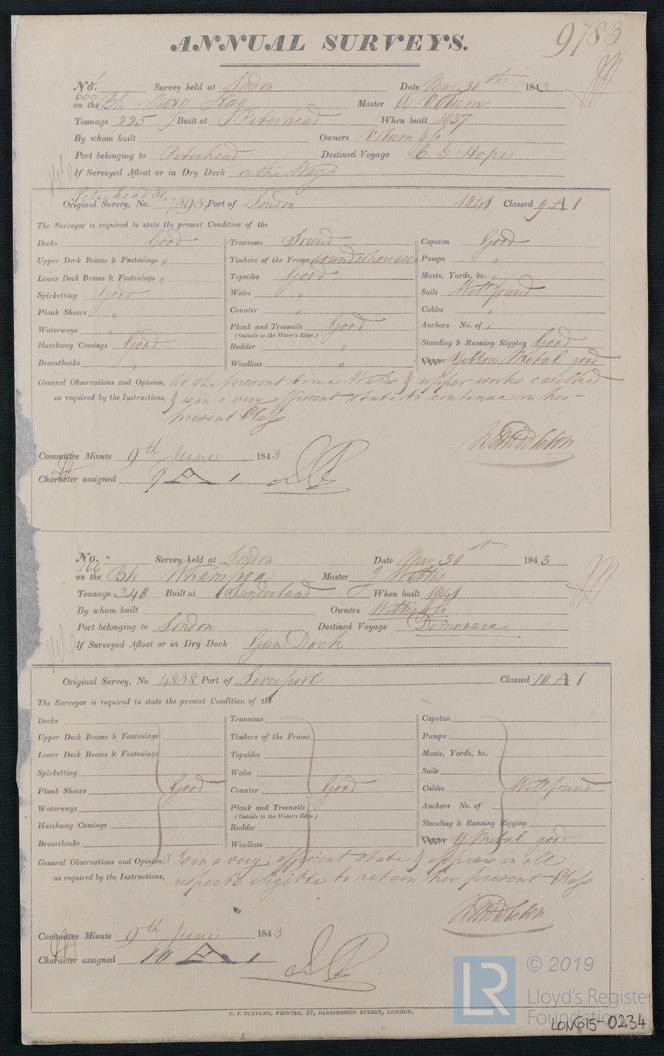 9783
ANNUAL SURVEYS.
No. Survey held at London Date May 31st 1843
600 on the Bk Mary Master
Tonnage 225 Built at Peterhead When built 1837
By whom built Owners
Port belonging to Peterhead Destined Voyage C. G. Hope
If Surveyed Afloat or in Dry Dock on the Ways
Peterhead
Original Survey, No. 7395 Port of London 1841 Classed 9 A 1
The Surveyor is required to state the present Condition of the
Decks Good Transoms Sound Capstan Good
Upper Deck Beams & Fastenings " Timbers of the Frame Pumps "
Lower Deck Beams & Fastenings " Topsides Good Masts, Yards, &c. "
Spirketting Good Wales " Sails Well found
Plank Shears " Counter " Cables "
Waterways " Plank and Treenails Good Anchors No. of "
(Outside to the Water's Edge.)
Hatchway Comings Good Rudder " Standing & Running Rigging Good
Breasthooks " Windlass " Yellow Metal good
General Observations and Opinion, At the present time Wales & upper works caulked
as required by the Instructions, & is in a very efficient state to continue in her
present Class
Committee Minute 9th June 1843
Character assigned 9 A 1
No. Survey held at London Date May 31st 1843
on the Bk Whampoa Master J
Tonnage 340 Built at Sunderland When built 1841
By whom built Owners
Port belonging to London Destined Voyage Demerara
If Surveyed Afloat or in Dry Dock Gun Dock
Original Survey, No. 4838 Port of Liverpool Classed 10 A 1
The Surveyor is required to state the present Condition of the
Decks Transoms Capstan
Upper Deck Beams & Fastenings Timbers of the Frame Pumps
Lower Deck Beams & Fastenings Topsides Masts, Yards, &c.
Spirketting Wales Sails
Plank Shears Good Counter Good Cables Well found
Waterways Plank and Treenails Anchors No. of
(Outside to the Water's Edge.)
Hatchway Comings Rudder Standing & Running Rigging
Breasthooks Windlass Y Metal good
General Observations and Opinion, is in a very efficient state & appears in all
as required by the Instructions, respects eligible to retain her present Class
Committee Minute 9th June 1843
Character assigned 10 A 1
C. F. SEYFANG, PRINTED, 57, FARRINGDON STREET, LONDON.
LR © 2019
Lloyd's Register
Foundation
LON615-0234